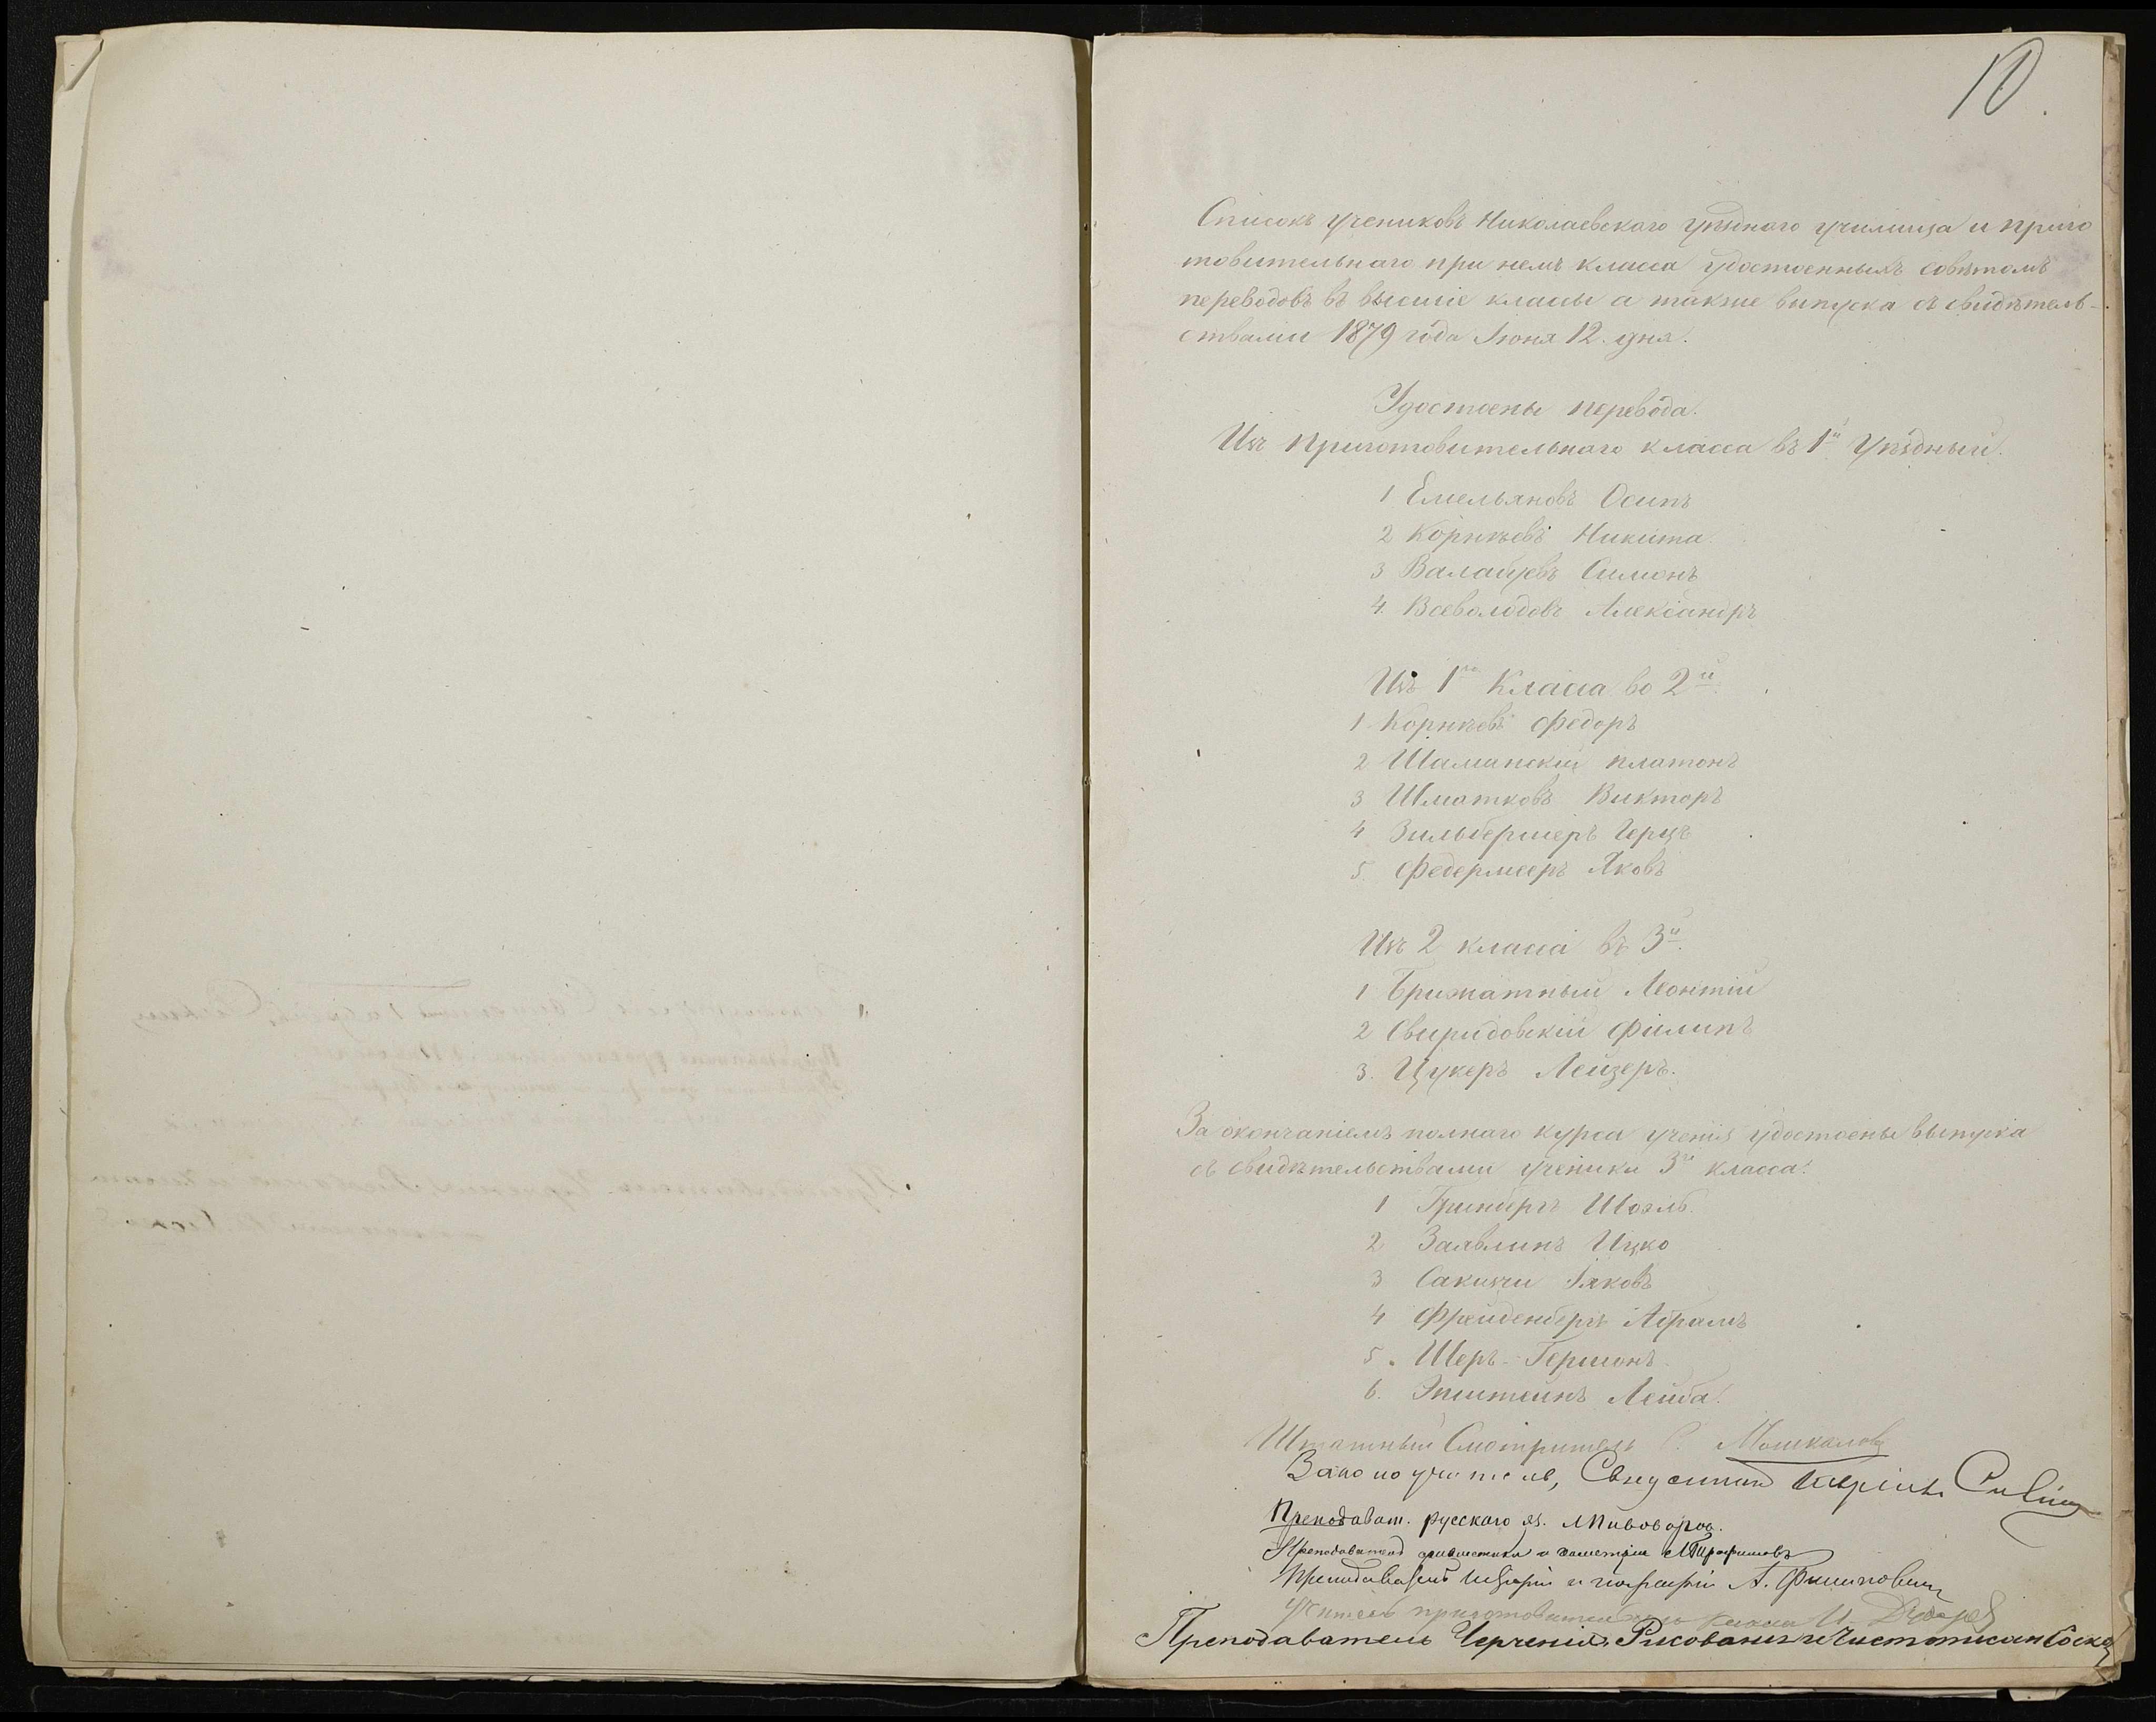 10.
Списокъ учениковъ Николаевскаго уѣзднаго училища и приго
товительнаго при немъ класса удостоенныхъ совѣтомъ
переводовъ въ высшіе классы а также выпуска съ свидѣтель-
ствами 1879 года Іюня 12. дня.
Удостоены перевода.
Изъ приготовительнаго класса въ 1й Уѣздный.
1 Емельяновъ Осипъ
2 Корнѣевъ Никита.
3 Симонъ
4. Всеволодовъ Александръ
Изъ 1го Класса во 2й.
1. Корнѣевъ Федоръ
2 Шаманскій Платонъ
3 Шматковъ Викторъ
4 Зильберміеръ Герцъ
5. Федермееръ Яковъ
Изъ 2 класса въ 3й.
1 Брижатный Леонтій
2 Свиридовскій Филипъ
3. Цукеръ Лейзеръ.
За окончаніемъ полнаго курса ученія удостоены выпуска
съ свидѣтельствами ученики 3го класса:
1 Гринбергъ Шоэль.
2 Заявлинъ Ицко
3 Іаковъ
4 Фрейденбергъ Абрамъ
5. Шеръ-Гершонъ
6. Эпштейнъ Лейба.
Штатный Смотритель С. Мошкаловъ
Законоучитель, Священникъ
Преподават. русскаго яз.
Преподаватель ариѳметики и геометріи
Преподаватель Исторіи и географіи А. Филиповичъ
Учитель приготовительнаго класса И.
Преподаватель Черченія, Рисованія и Чистописан